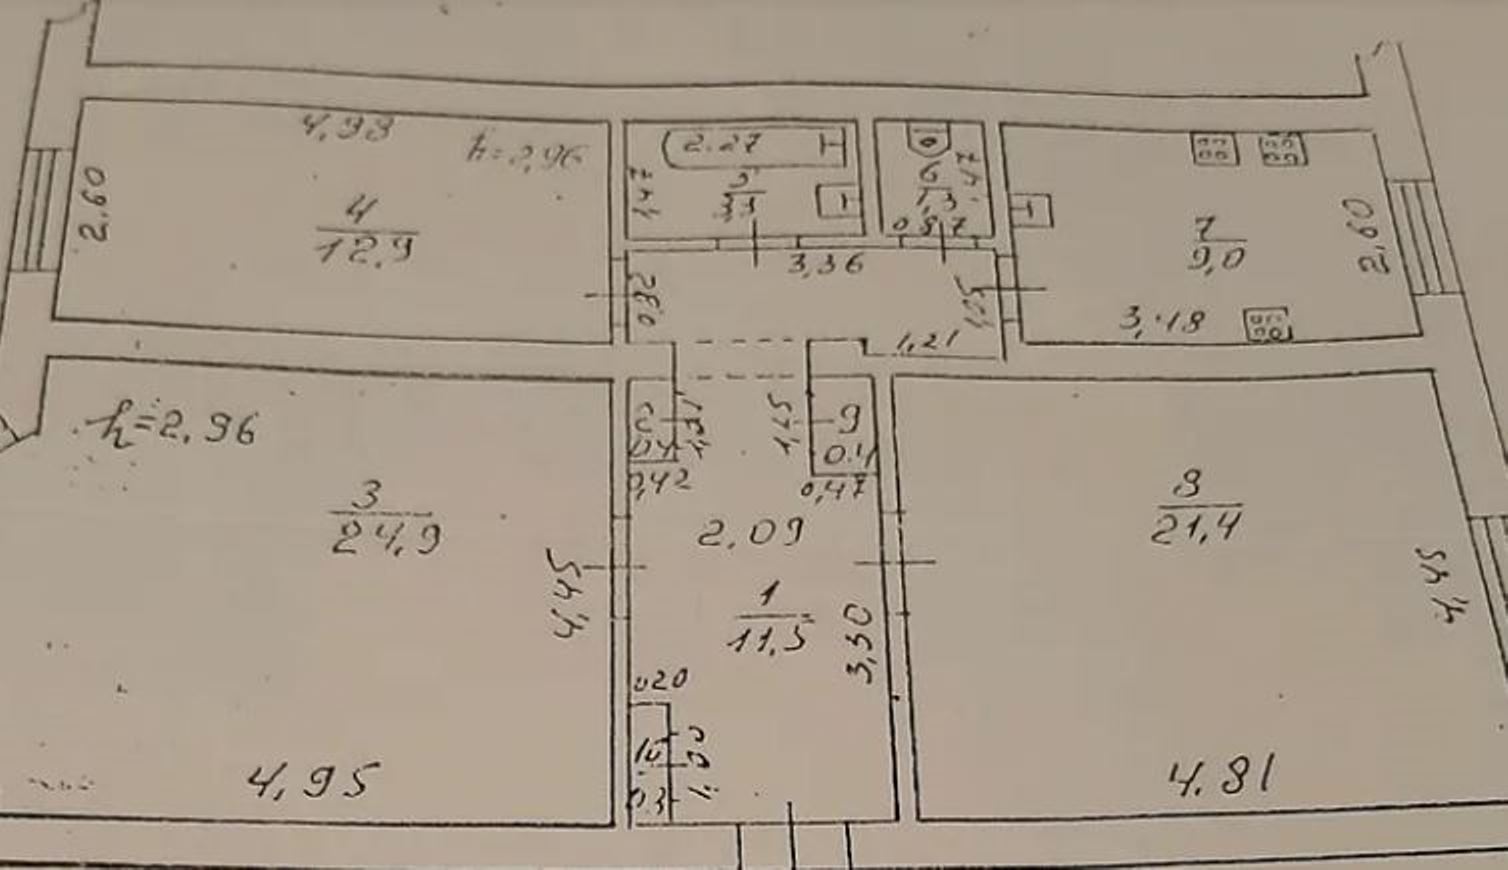 4,93
h=2,96
2.27
2,60
1,47
5
3,3
6
1,3
1,47
0,87
4
12,9
7
9,0
2,60
3,36
0,82
3,48
1,21
h=2.96
2
0.4
0,42
1,31
1,25
9
0.4
0,47
3
24,9
2,09
8
21,4
4,45
4,45
1
11,5
3,30
0,20
10
0.3
4,95
4.81